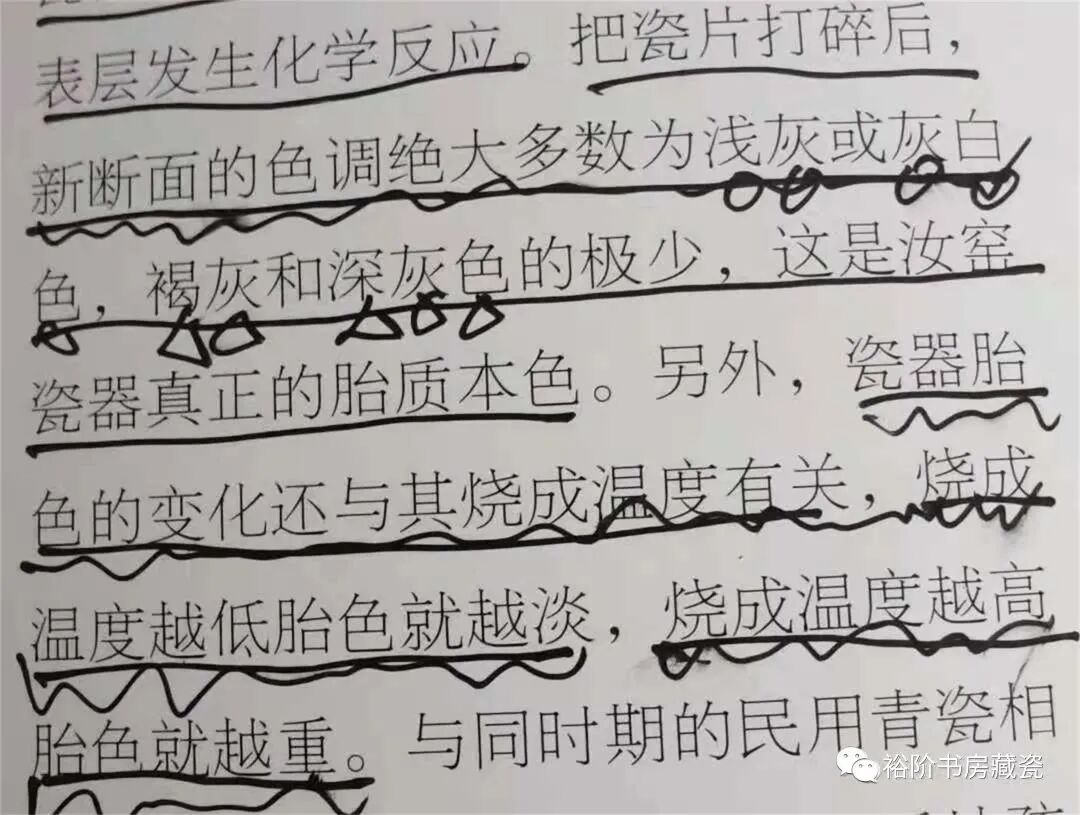 表层发生化学反应。把瓷片打碎后，
新断面的色调绝大多数为浅灰或灰白
色，褐灰和深灰色的极少，这是汝窑
瓷器真正的胎质本色。另外，瓷器胎
色的变化还与其烧成温度有关，烧成
温度越低胎色就越淡，烧成温度越高
胎色就越重。与同时期的民用青瓷相
裕阶书房藏瓷